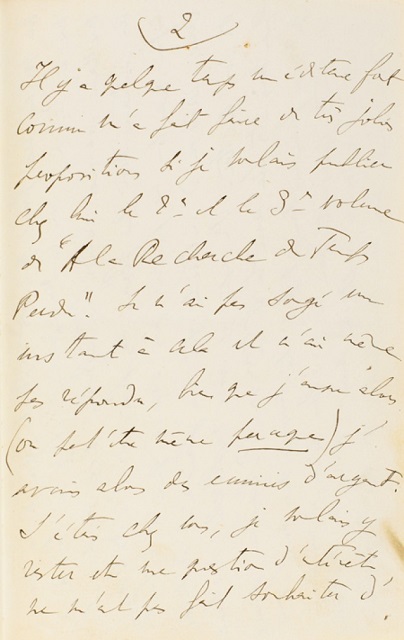 2
Il y a quelque temps un éditeur fort
connu m'a fait faire de très jolies
propositions si je voulais publier
chez lui le 2e et le 3e volume
de "A la Recherche du Temps
Perdu". Je n'ai pas songé un
instant à cela et n'ai même
pas répondu, bien que j'eusse alors
(ou peut'être même parce que) j'
avais alors des ennuis d'argent.
J'étais chez vous, je voulais y
rester et une question d'intérêt
ne m'eut pas fait souhaiter d'